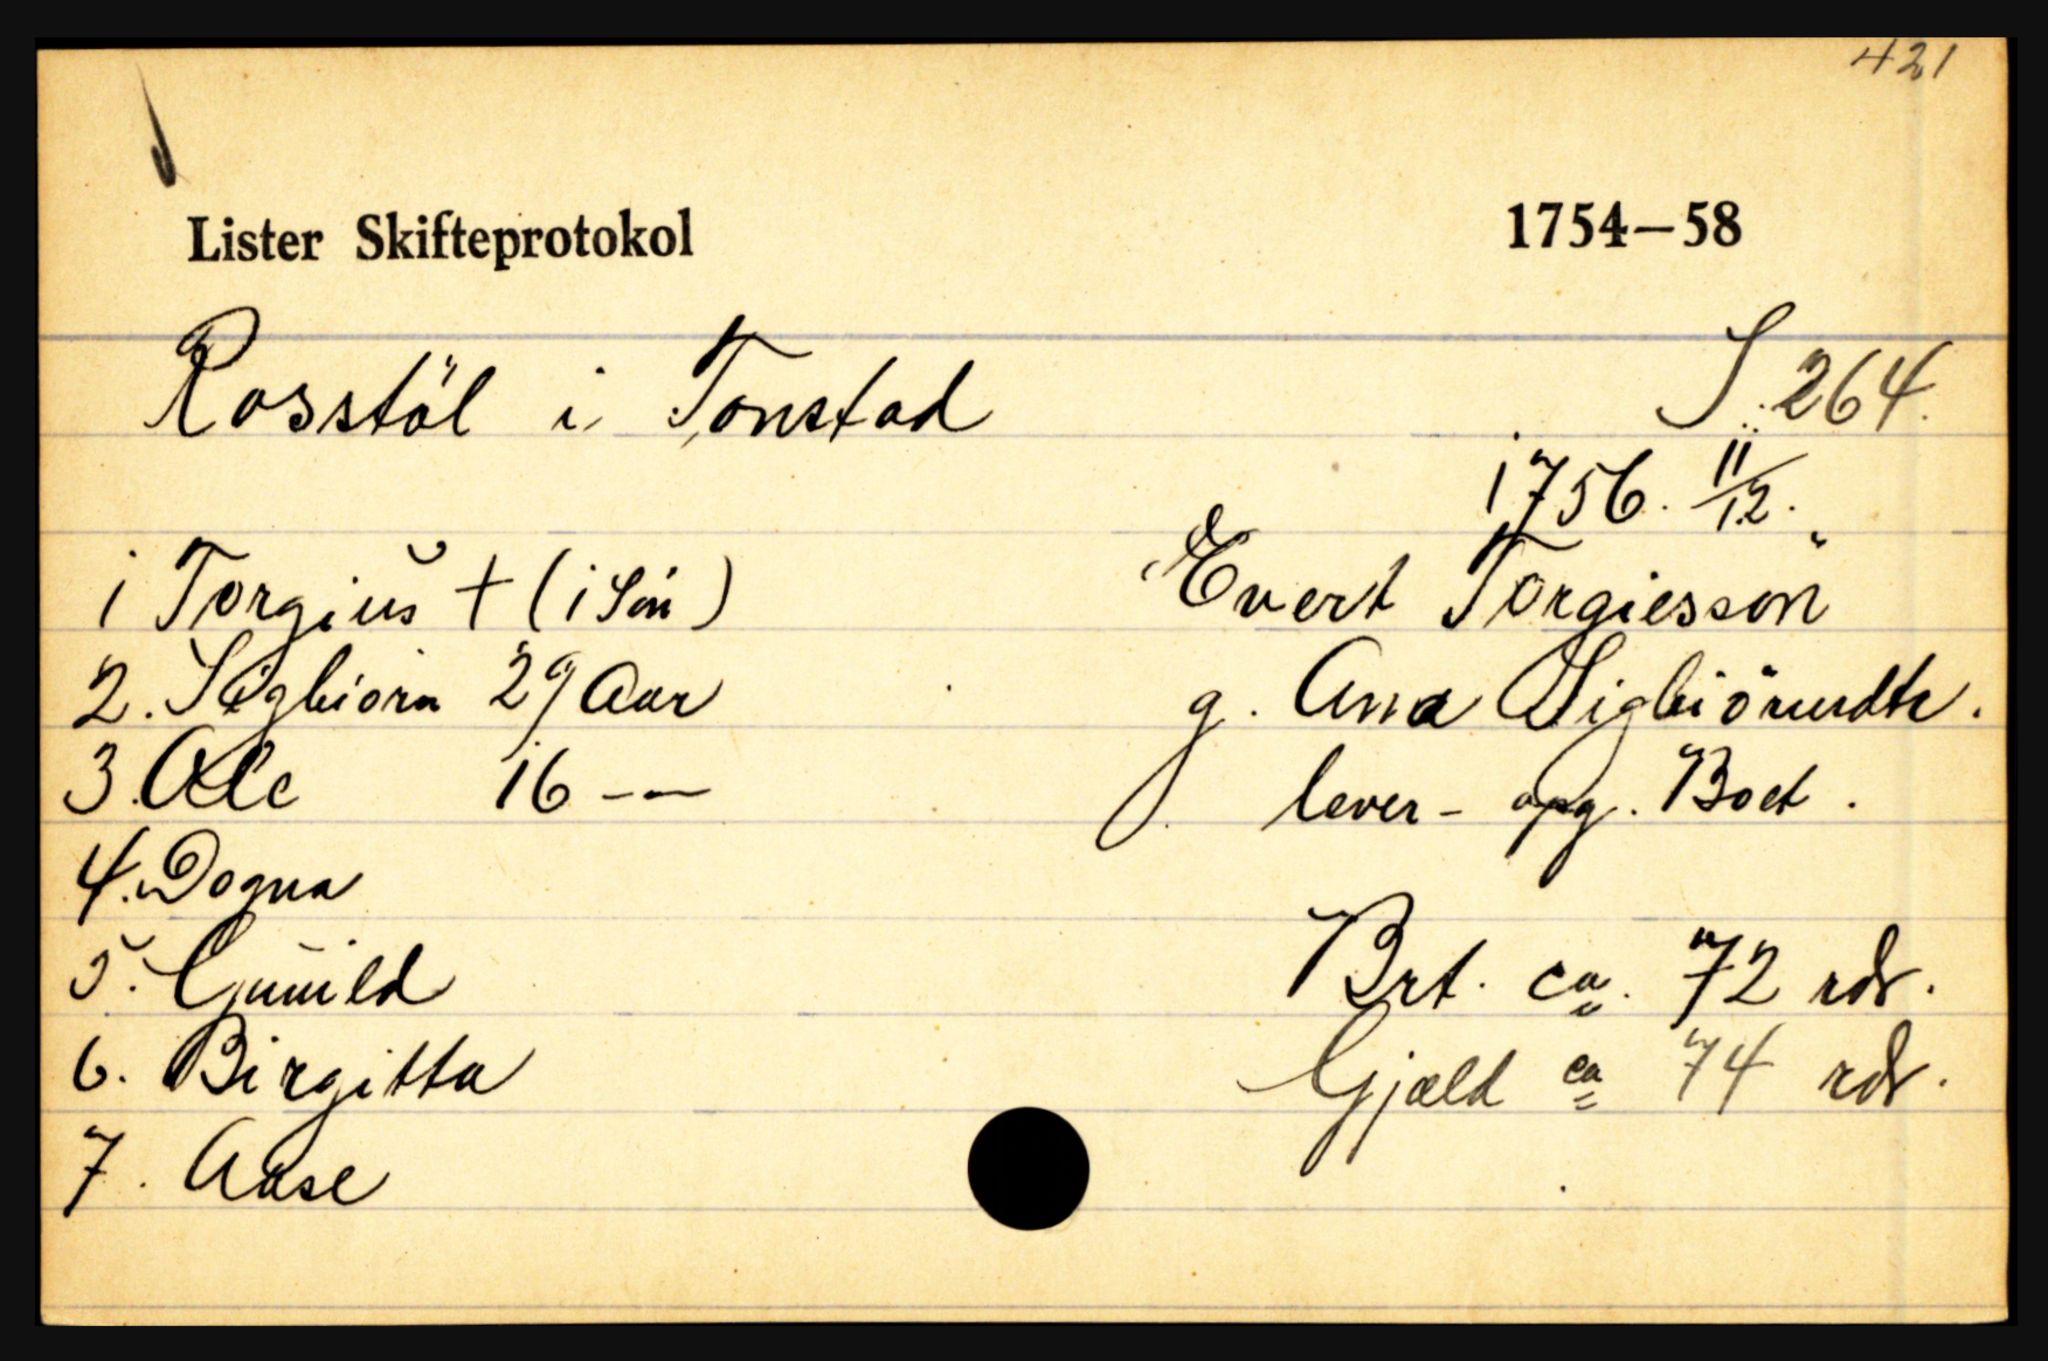 421
Lister Skifteprotokol 1754—58
Rosstöl i Tonstad S. 264.
1756. 11/12.
Evert Torgiesson
1 Torgius + (1 Sön)
g. Ana Sigbiörnsdtr.
2. Sigbiörn 29 Aar
lever - opg. Boet.
3. Ole 16 -—
4. Dogna
5. Gunild
Brt. ca. 72 rdr.
6. Birgitta
Gjæld ca 74 rdr.
7. Aase